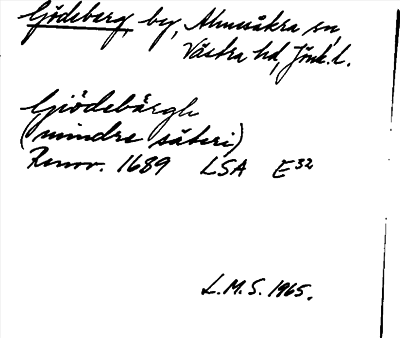 Gödeberg, by, Almesåkra sn,
Västra hd, Jönk. l.
Giödebärgh
(mindre säteri)
Renov. 1689 LSA E32
L.M.S. 1965.